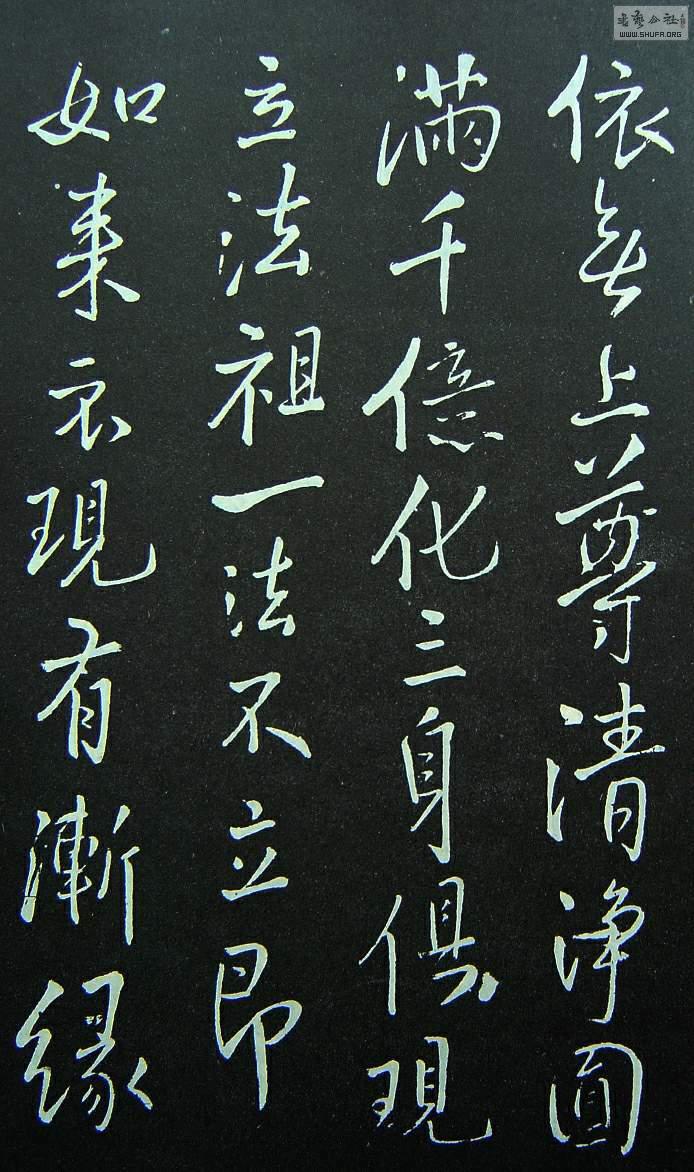 依無上尊清淨圓
滿千億化三身俱現
立法祖一法不立即
如来示現有漸緣
書藝公社
WWW.SHUFA.ORG